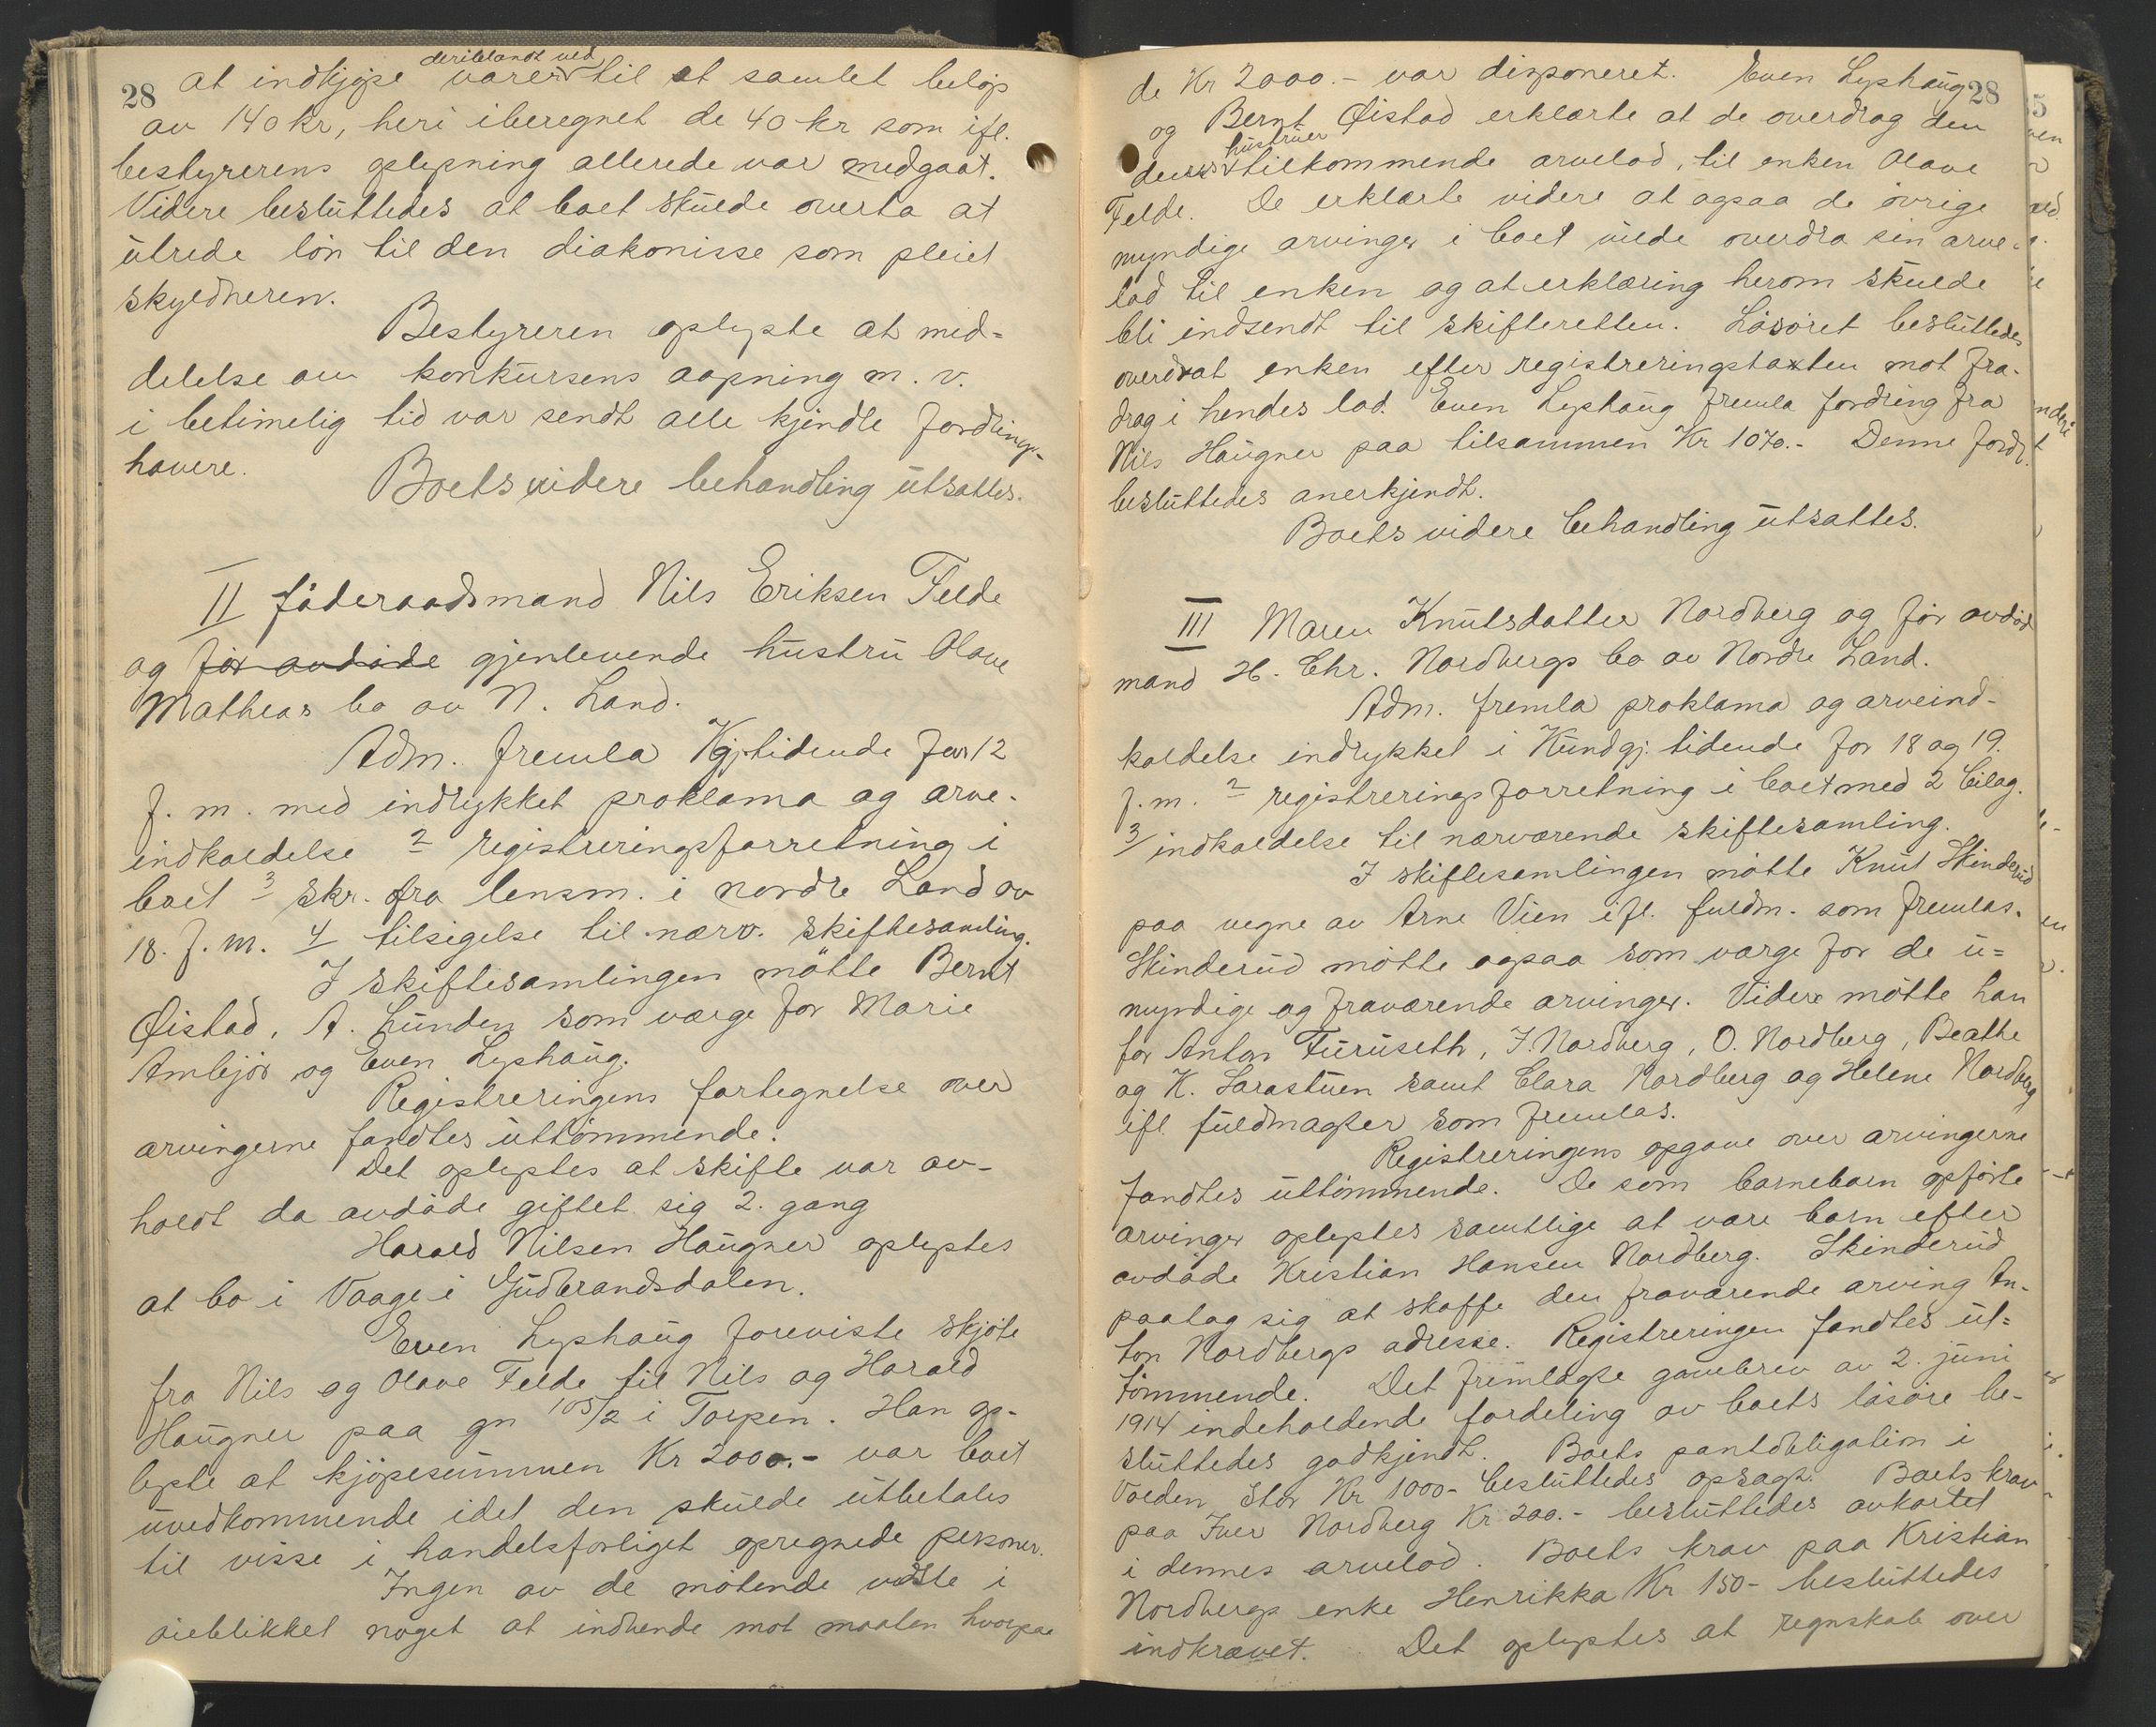 28
deriblandt ved
at indkjøpe varer til et samlet beløp
av 140 kr, heri iberegnet de 40 kr som ifl.
bestyrerens oplysning allerede var medgaat.
Videre besluttedes at boet skulde overta at
utrede løn til den diakonisse som pleiet
skyldneren.
Bestyreren oplyste at mid-
delelse om konkursens aapning m. v.
i betimelig tid var sendt alle kjendte fordrings-
havere.
Boets videre behandling utsattes.
II föderaadsmand Nils Eriksen Felde
og för avdöde gjenlevende hustru Olave
Matheas bo av N. Land.
Adm. fremla Kgj.tidende for 12
f. m. med indrykket proklama og arve-
indkaldelse 2 registreringsforretning i
boet 3 skr. fra lensm. i nordre Land av
18. f. m. 4 tilsigelse til nærv. skiftesamling.
I skiftesamlingen mötte Bernt
Øistad, A. Lunden som værge for Marie
Amlejor og Even Lyshaug.
Registreringens fortegnelse over
arvingerne fandtes uttömmende.
Det oplystes at skifte var av-
holdt da avdöde giftet sig 2. gang
Harald Nilsen Haugner oplystes
at bo i Vaage i Gudbrandsdalen.
Even Lyshaug foreviste skjöte
fra Nils og Olave Felde til Nils og Harald
Haugner paa gn 105/2 i Torpen. Han op-
lyste at kjöpesummen Kr 2000.- var boet
uvedkommende idet den skulde utbetales
til visse i handelsforliget opregnede personer.
Ingen av de mötende visste i
øieblikket noget at indvende mot maaten hvorpaa
28
de Kr 2000.- var disponeret. Even Lyshaug
og Bernt Øistad erklærte at de overdrog den
hustruer
deres tilkommende arvelod, til enken Olave
Felde. De erklærte videre at ogsaa de övrige
myndige arvinger i boet vilde overdra sin arve-
lod til enken og at erklæring herom skulde
bli indsendt til skifteretten. Lösöret besluttedes
overdrat enken efter registreringstaxten mot fra-
drag i hendes lod. Even Lyshaug fremla fordring fra
Nils Haugner paa tilsammen Kr 1070.- Denne fordr.
besluttedes anerkjendt.
Boets videre behandling utsattes.
III Maren Knutsdatter Nordberg og för avdöd
mand H. Chr. Nordbergs bo av Nordre Land.
Adm. fremla proklama og arveind-
kaldelse indrykket i Kundgj. tidende for 18 og 19.
f. m. 2 registreringsforretning i boet med 2 bilag.
3/ indkaldelse til nærværende skiftesamling.
I skiftesamlingen mötte Knut Skinderud
paa vegne av Arne Vien ifl. fuldm. som fremlas.
Skinderud mötte ogsaa som værge for de u-
myndige og fraværende arvinger. Videre mötte han
for Anton Furuseth, I. Nordberg, O. Nordberg, Beathe
og K. Sarastuen samt Clara Nordberg og Helene Nordberg
ifl. fuldmagter som fremlas.
Registreringens opgave over arvingerne
fandtes uttömmende. De som barnebarn opförte
arvinger oplystes samtlige at være barn efter
avdöde Kristian Hansen Nordberg. Skinderud
paatog sig at skaffe den fraværende arving An-
ton Nordbergs adresse. Registreringen fandtes ut-
tömmende. Det fremlagte gavebrev av 2. juni
1914 indeholdende fordeling av boets lösöre be-
sluttedes godkjendt. Boets pantobligation i
Volden stor Kr 1000- besluttedes opsagt. Boets krav
paa Iver Nordberg Kr 200.- besluttedes avkortet
i dennes arvelod. Boets krav paa Kristian
Nordbergs enke Henrikka Kr 150- besluttedes
indkrævet. Det oplystes at regnskab over